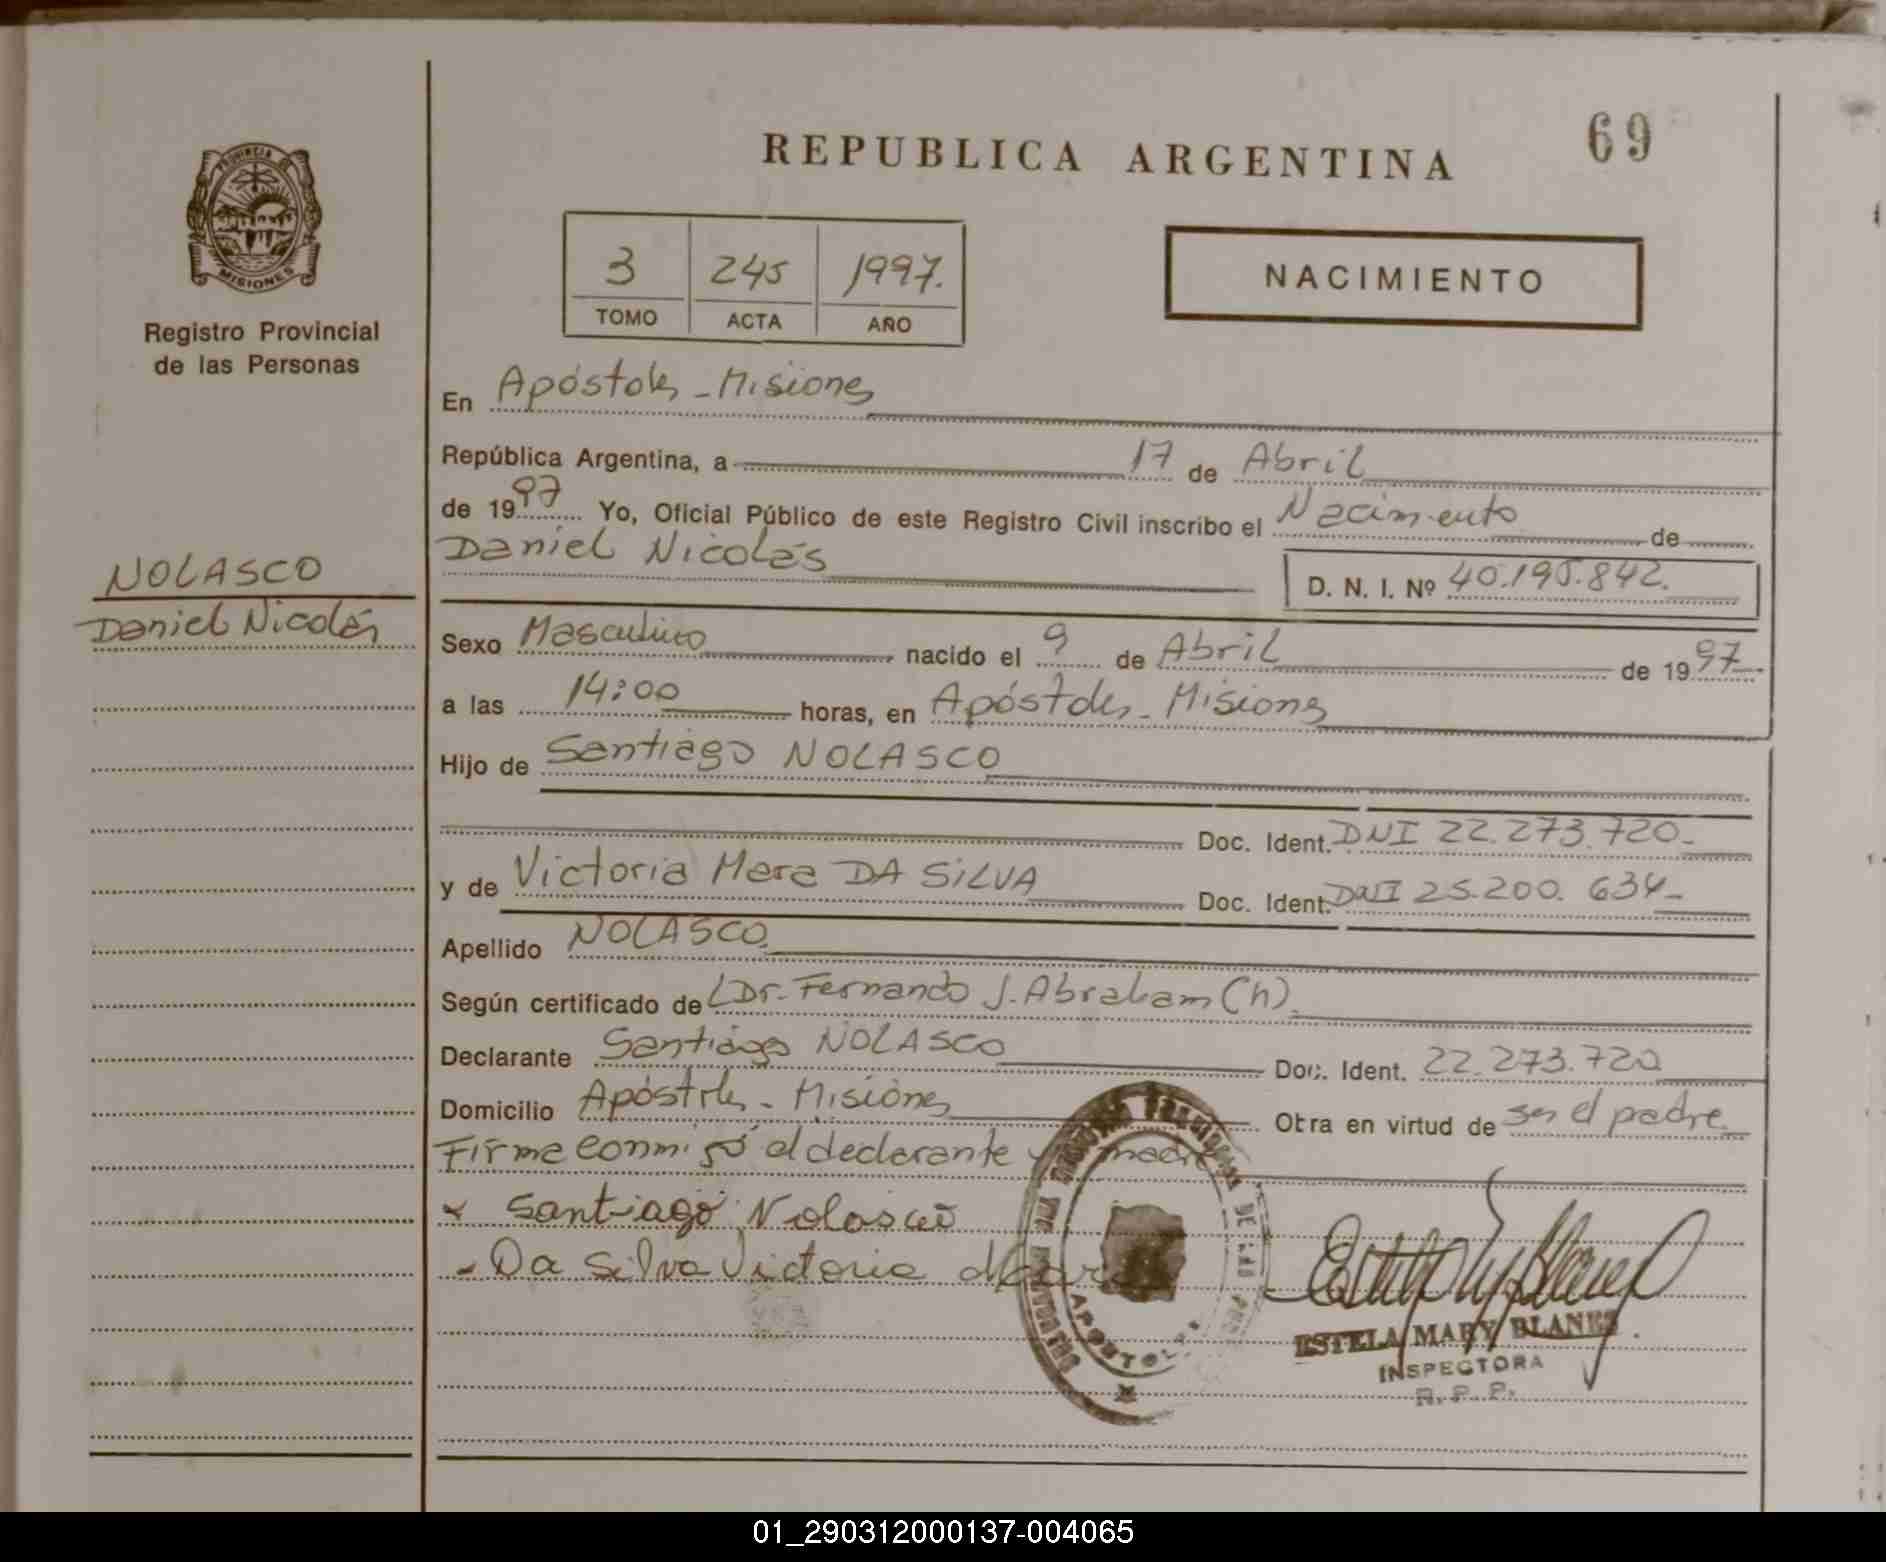 69
REPUBLICA ARGENTINA
PROVINCIA DE MISIONES
Registro Provincial
de las Personas
3 245 1997.
TOMO ACTA AÑO
NACIMIENTO
En Apóstoles - Misiones
República Argentina, a 17 de Abril
de 1997 Yo, Oficial Público de este Registro Civil inscribo el Nacimiento de
Daniel Nicolás D. N. I. Nº 40.195.842.
NOLASCO
Daniel Nicolás
Sexo Masculino nacido el 9 de Abril de 1997
a las 14:00 horas, en Apóstoles - Misiones
Hijo de Santiago NOLASCO
Doc. Ident. DNI 22.273.720-
y de Victoria Mara DA SILVA Doc. Ident. DNI 25.200.634-
Apellido NOLASCO.
Según certificado de Dr. Fernando J. Abraham (h).
Declarante Santiago NOLASCO Doc. Ident. 22.273.720
Domicilio Apóstoles - Misiones Obra en virtud de ser el padre
Firma conmigo el declarante y madre
Santiago Nolasco
- Da Silva Victoria Mara
APOSTOLES
ESTELA MARY BLANES
INSPECTORA
R. P. P.
01_290312000137-004065